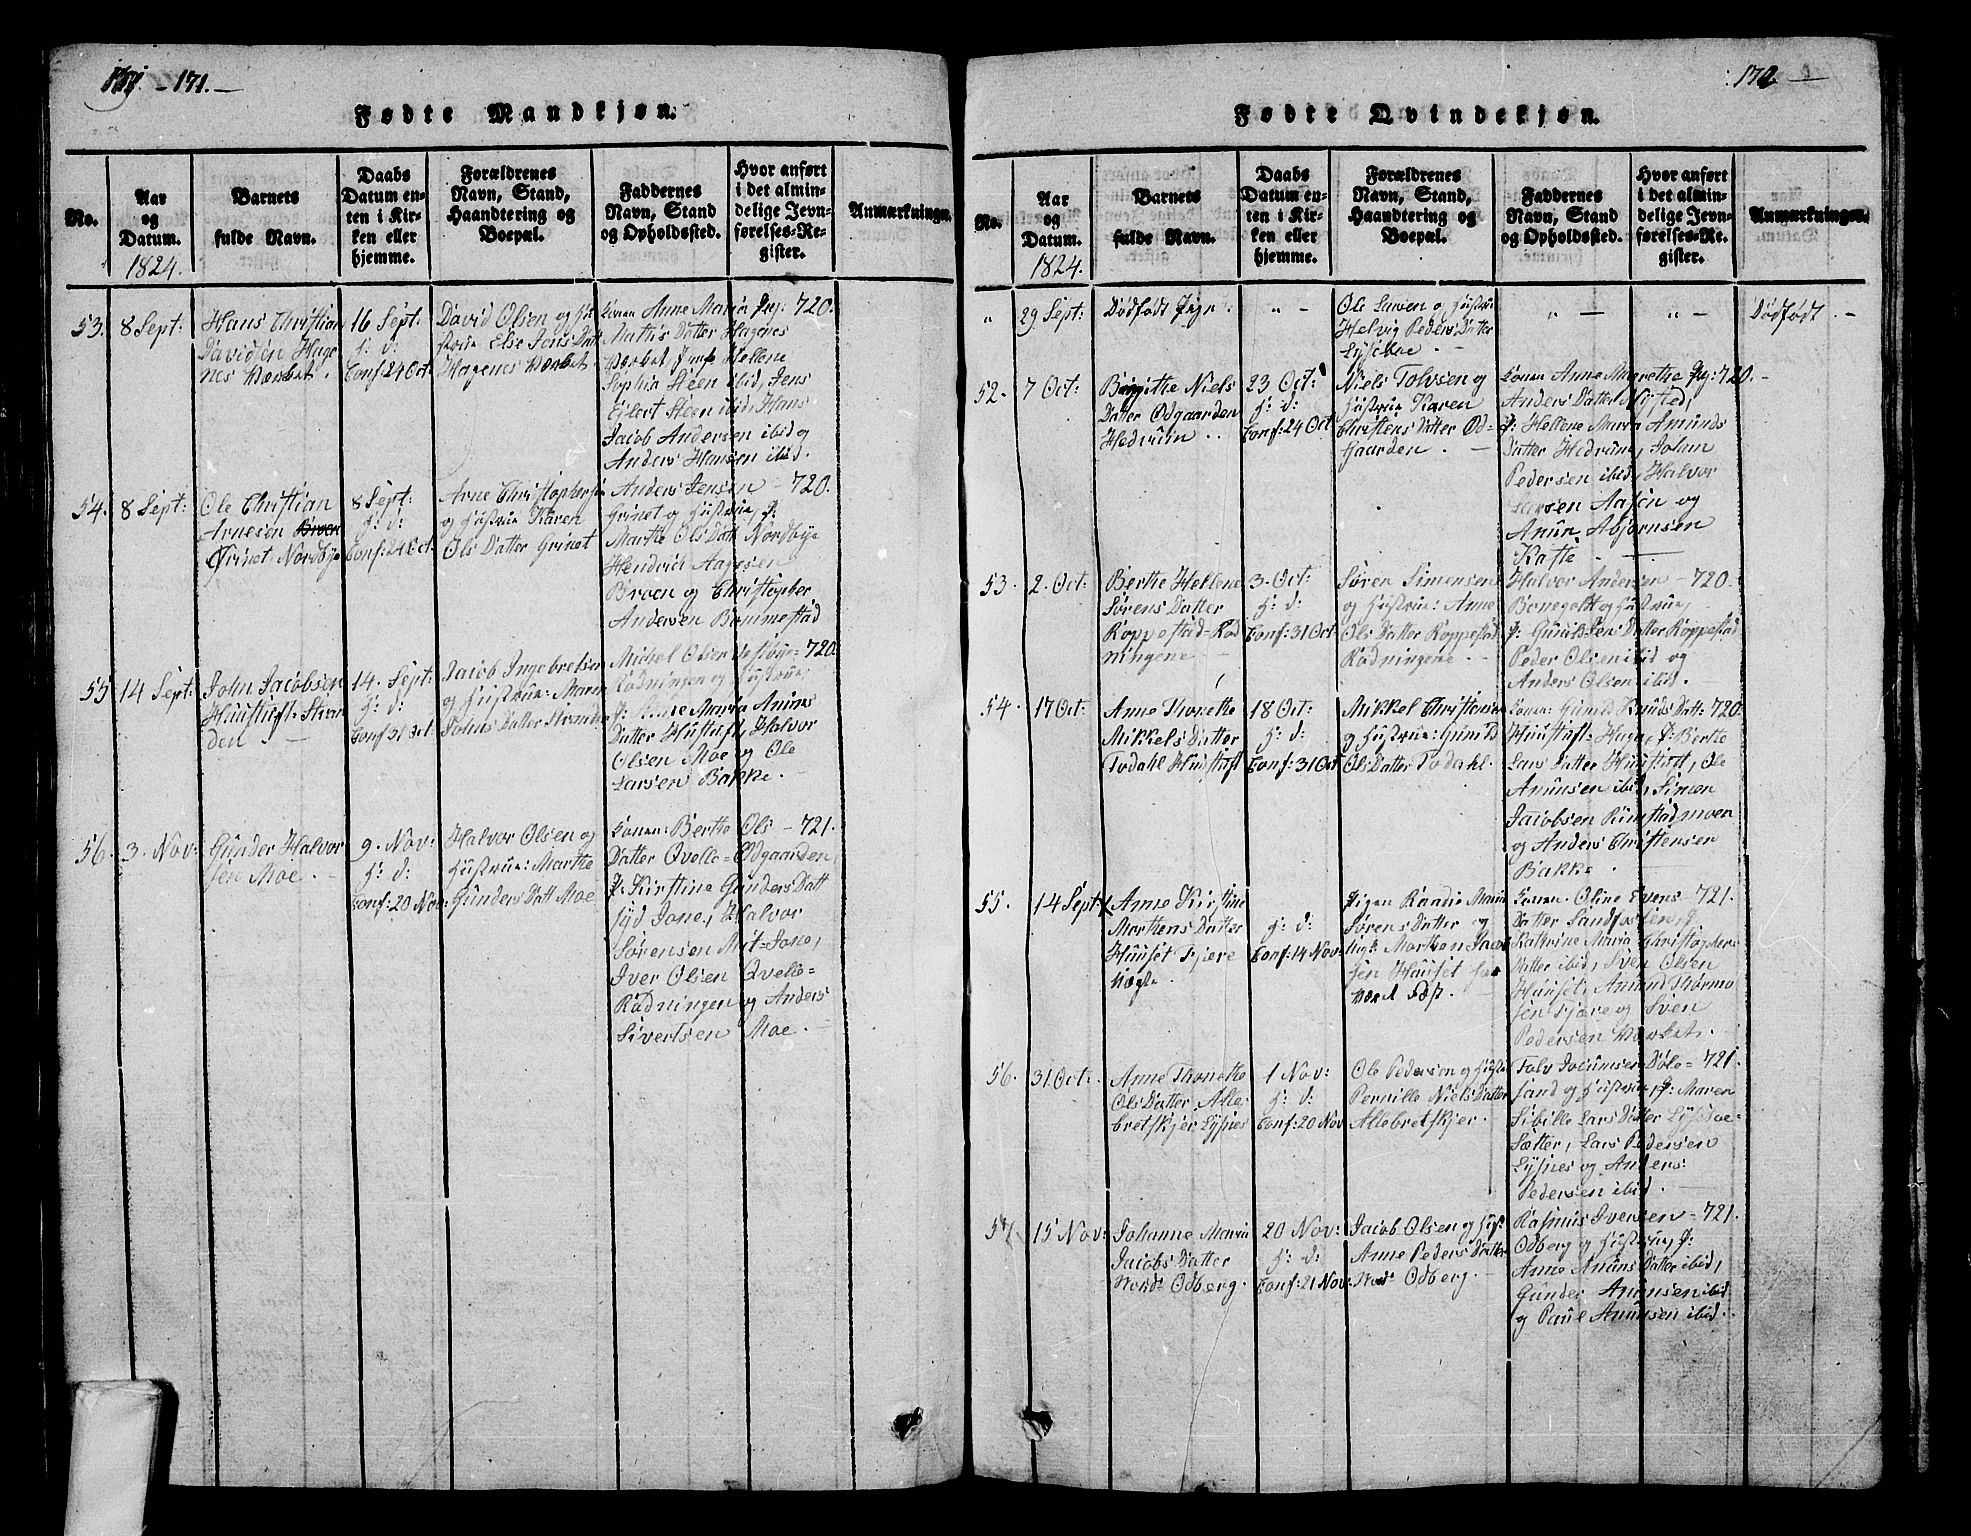 171.
Fødte Mandkjøn.
No.
Aar
og
Datum.
1824.
Barnets
fulde Navn.
Daabs
Datum en-
ten i Kir-
ken eller
hjemme.
Forældrenes
Navn, Stand,
Haandtering og
Boepæl.
Faddernes
Navn, Stand
og Opholdssted.
Hvor anført
i det almin-
delige Jevn-
førelses-Re-
gister.
Anmærkninger.
53.
8 Sept:
Hans Christian
Davidsen Hage
nes Værket.
16 Sept:
h: d:
Conf: 24 Oct.
David Olsen og hu
strue Else Jens Datt
Hagenes Værket.
Konen Anne Maria
Mathis Datter Hagenes
Værket, Hellene
Sophia Steen ibid, Jens
Eilert Steen ibid, Hans
Jacob Andersen ibid og
Anders Hansen ibid.
720.
54.
8 Sept:
Ole Christian
Arnesen Broen
Grinet Nordbye
8 Sept:
h: d:
Conf: 24 Oct.
Arne Christophersen
og Hustrue Karen
Ols Datter Grinet
Anders Jensen
Grinet og Hustrue, P:
Marthe Ols Datt Nordbye
Hendrich Aagesen
Broen og Christopher
Andersen Bommestad
720.
55
14 Sept:
John Jacobsen
Huustuft-Stran
den.
14. Sept:
h: d:
Conf 31 Oct:
Jacob Ingebretsen
og Hustrue: Maren
Johns Datter Stranden
Michel Olsen Vestbye
Rødningen og Hustrue,
P: Anne Maria Amuns
Datter Hustuft, Halvor
Olsen Moe og Ole
Larsen Bakke.
720.
56.
3. Nov:
Gunder Halvor
sen Moe.
9. Nov:
h: d:
Conf: 20 Nov:
Halvor Olsen og
Hustrue: Marthe
Gunders Datt Moe
Konen: Berthe Ols
Datter Qvelle-Odgaarden,
P: Kirstine Gunders Datt
Syd Jone, Halvor
Sørensen Mit-Jone,
Iver Olsen Qvelle-
Rødningen og Anders
Sivertsen Moe.
721.
172
Fødte Qvindekjøn.
No.
Aar
og
Datum.
1824.
Barnets
fulde Navn.
Daabs
Datum en-
ten i Kir-
ken eller
hjemme.
Forældrenes
Navn, Stand,
Haandtering og
Boepæl.
Faddernes
Navn, Stand
og Opholdssted.
Hvor anført
i det almin-
delige Jevn-
førelses-Re-
gister.
Anmærkninger.
29 Sept:
Dødfødt Pige.
Ole Larsen og Hustrue
Helvig Peders Datter
Lyseboe.
Dødfødt.
52.
7 Oct:
Birgithe Niels
Datter Odgaarden
Hedrum.
23 Oct:
h: d:
Conf: 24 Oct
Niels Tolvsen og
Hustrue Karen
Christens Datter Od-
gaarden.
Konen Anne Marethe
Anders Datter Nysted,
P: Hellene Maria Amunds
Datter Hedrum, Johan
Pedersen ibid, Halvor
Larsen Aasen og
Amun Asjornsen
Kaste.
720.
53.
2. Oct:
Berthe Hellene
Sørens Datter
Roppestad-Rød
ningene
3. Oct:
h: d:
Conf: 31 Oct
Søren Simensen
og Hustrue: Anne
Ols Datter Roppestad
Rødningene.
Halvor Andersen
Bonegolt og Hustrue,
P: Gunild Jens Datter Roppestad
Peder Olsen ibid og
Anders Olsen ibid.
720.
54.
17 Oct:
Anne Thonette
Mikkels Datter
Tvdahl Huustuft
18 Oct:
h: d:
Conf: 31 Oct
Mikkel Christensen
og Hustrue: Gunild
Ols Datter Tvdahl.
Konen: Gunild Knuds Datt:
Huustuft-Hagen, P: Berthe
Lars Datter Huustuft, Ole
Amunsen ibid, Simen
Jacobsen Rimstadmoen
og Anders Christensen
Bakke.
720.
55.
14 Sept:
Anne Kirstine
Morthens Datter
Huuset Fjære
Nægte.
h: d:
Conf: 14 Nov:
Pigen Randie Maria
Sørens Datter og
Ungk: Morthen Jacob
sen Huuset
Konen. Oline Evens
Datter Sandfosten, P:
Kathrine Maria Christophers
Datter ibid, Sven Olsen
Huuset, Amund Thormo
sen Fjære og Sven
Pedersen Værket.
721.
56.
31 Oct:
Anne Thonette
Ols Datter, Alle-
bretskjer Lysnes
1 Nov:
h: d:
Conf: 20 Nov
Ole Pedersen og Hustr
Pernille Niels Datter
Allebretskjer.
Tolv Jocumsen Døle-
sand og Hustrue, P: Maren
Sibille Lars Datter Lyseboe-
Sætter, Lars Pedersen
Lysnes og Anders
Pedersen ibid.
721.
57.
15 Nov:
Johanne Maria
Jacobs Datter
Nord: Odberg.
20 Nov:
h: d:
Conf: 21 Nov:
Jacob Olsen og Hus:
Anne Peders Datter
Nord: Odberg.
Rasmus Iversen
Odberg og Hustrue, P:
Anne Amuns Datter ibid,
Gunder Amunsen ibid
og Paul Amunsen ibid.
721.